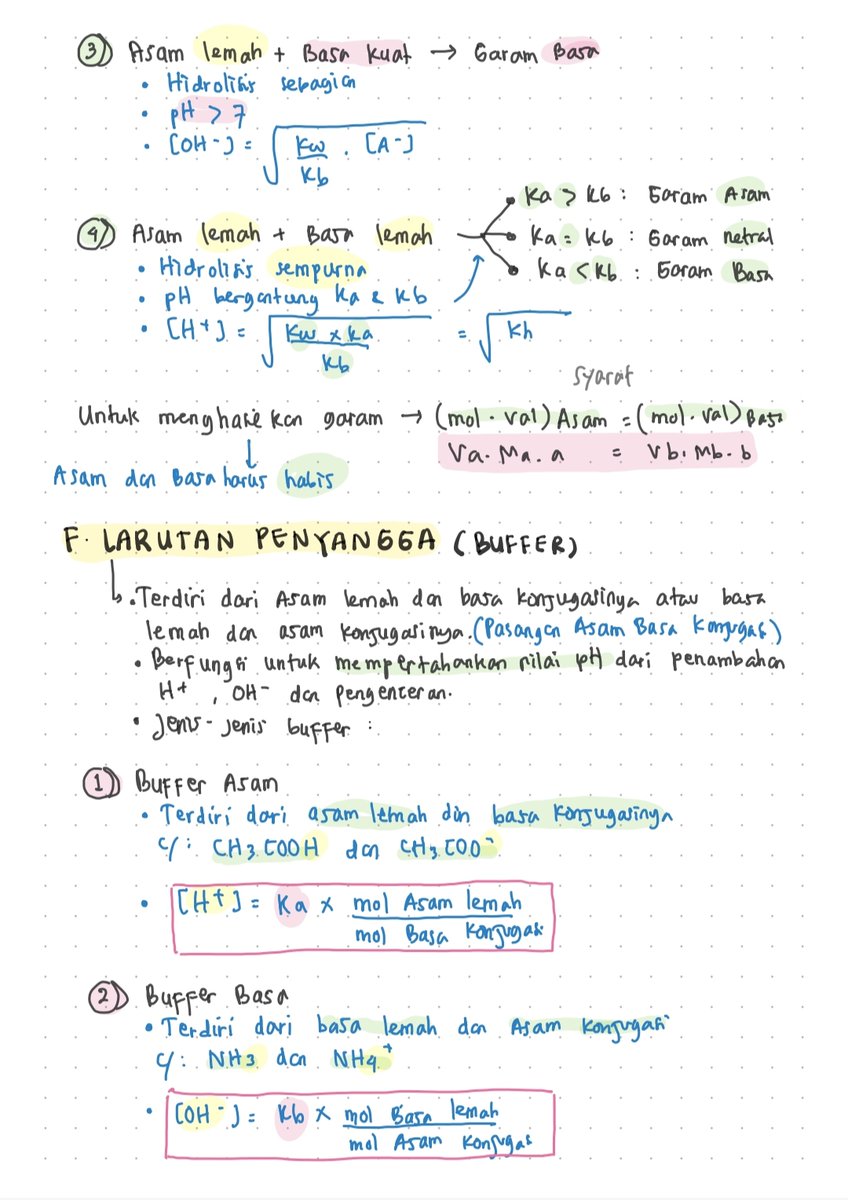 3) Asam lemah + Basa kuat → Garam Basa
• Hidrolisis sebagian
• pH > 7
• [OH-] = √ Kw/Kb . [A-]
4) Asam lemah + Basa lemah
Ka > Kb : Garam Asam
Ka = Kb : Garam netral
Ka < Kb : Garam Basa
• Hidrolisis sempurna
• pH bergantung ka & kb
• [H+] = √ Kw x ka / Kb = √ Kh
syarat
Untuk menghasilkan garam → (mol . val) Asam = (mol . val) Basa
Va. Ma. a = Vb. Mb. b
Asam dan Basa harus habis
F. LARUTAN PENYANGGA (BUFFER)
• Terdiri dari Asam lemah dan basa konjugasinya atau basa
lemah dan asam konjugasinya. (Pasangan Asam Basa Konjugasi)
• Berfungsi untuk mempertahankan nilai pH dari penambahan
H+ , OH- dan pengenceran.
• Jenis - jenis buffer :
1) Buffer Asam
• Terdiri dari asam lemah dan basa konjugasinya
c/ : CH3COOH dan CH3COO-
• [H+] = Ka x mol Asam lemah / mol Basa Konjugasi
2) Buffer Basa
• Terdiri dari basa lemah dan Asam konjugasi
c/ : NH3 dan NH4+
• [OH-] = Kb x mol Basa lemah / mol Asam Konjugasi